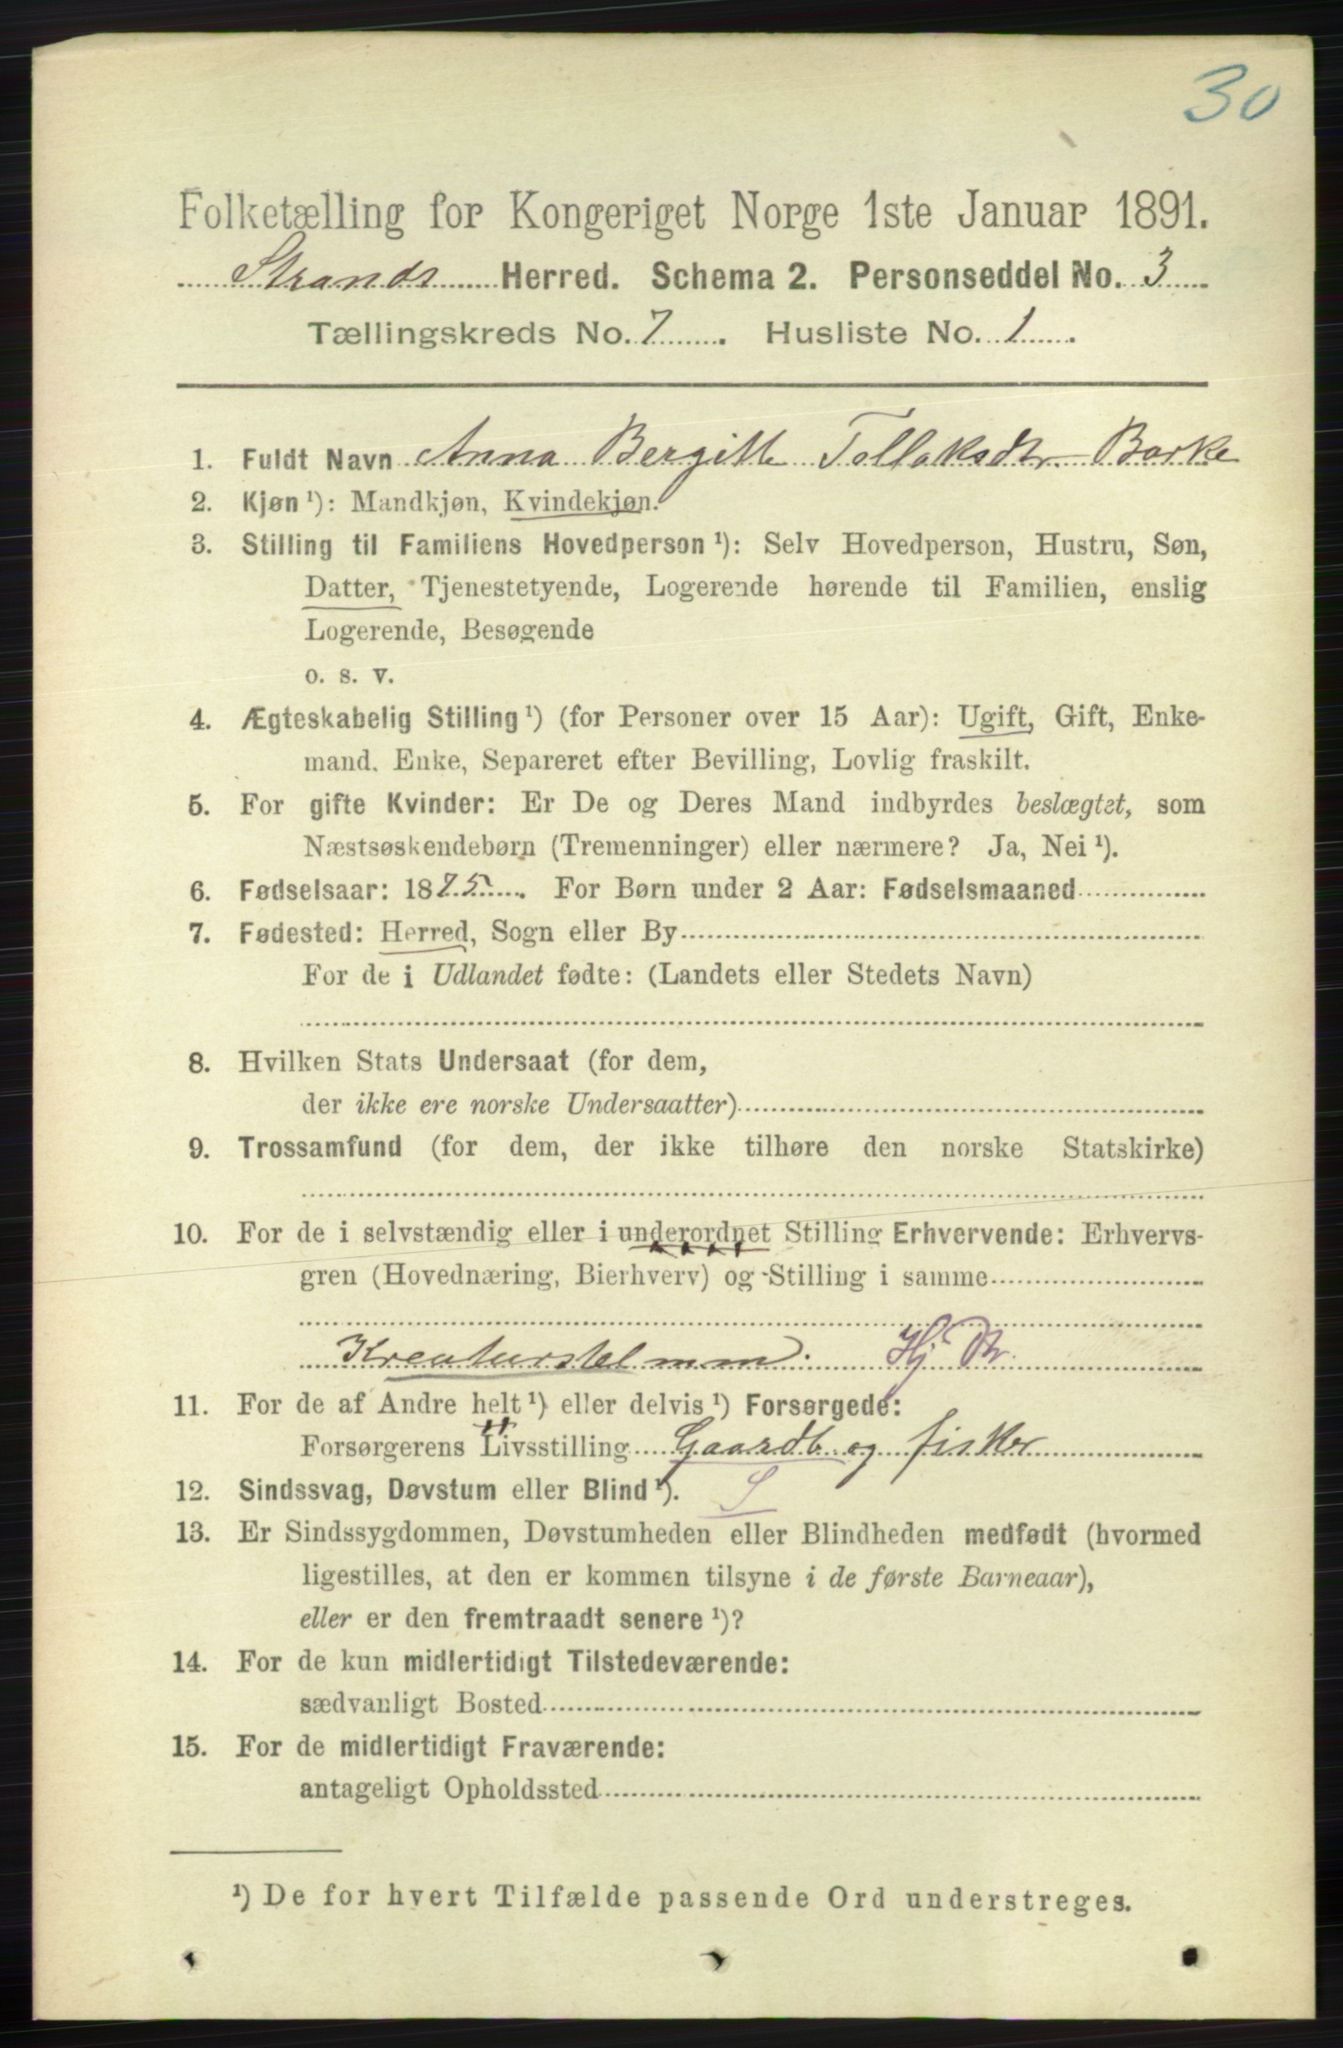 30
Folketælling for Kongeriget Norge 1ste Januar 1891.
Strands Herred. Schema 2. Personseddel No. 3
Tællingskreds No. 7. Husliste No. 1.
1. Fuldt Navn Anna Bergitte Tollaksdtr. Barke
2. Kjøn ¹): Mandkjøn, Kvindekjøn.
3. Stilling til Familiens Hovedperson ¹): Selv Hovedperson, Hustru, Søn,
Datter, Tjenestetyende, Logerende hørende til Familien, enslig
Logerende, Besøgende
o. s. v.
4. Ægteskabelig Stilling ¹) (for Personer over 15 Aar): Ugift, Gift, Enke-
mand, Enke, Separeret efter Bevilling, Lovlig fraskilt.
5. For gifte Kvinder: Er De og Deres Mand indbyrdes beslægtet, som
Næstsøskendebørn (Tremenninger) eller nærmere? Ja, Nei ¹).
6. Fødselsaar: 1875. For Børn under 2 Aar: Fødselsmaaned
7. Fødested: Herred, Sogn eller By
For de i Udlandet fødte: (Landets eller Stedets Navn)
8. Hvilken Stats Undersaat (for dem,
der ikke ere norske Undersaatter)
9. Trossamfund (for dem, der ikke tilhøre den norske Statskirke)
10. For de i selvstændig eller i underordnet Stilling Erhvervende: Erhvervs-
gren (Hovednæring, Bierhverv) og Stilling i samme
Kreaturstel m m. Hj Dtr.
11. For de af Andre helt ¹) eller delvis ¹) Forsørgede:
Forsørgerens Livsstilling Gaardb og fisker
12. Sindssvag, Døvstum eller Blind ¹). S
13. Er Sindssygdommen, Døvstumheden eller Blindheden medfødt (hvormed
ligestilles, at den er kommen tilsyne i de første Barneaar),
eller er den fremtraadt senere ¹)?
14. For de kun midlertidigt Tilstedeværende:
sædvanligt Bosted
15. For de midlertidigt Fraværende:
antageligt Opholdssted
¹) De for hvert Tilfælde passende Ord understreges.